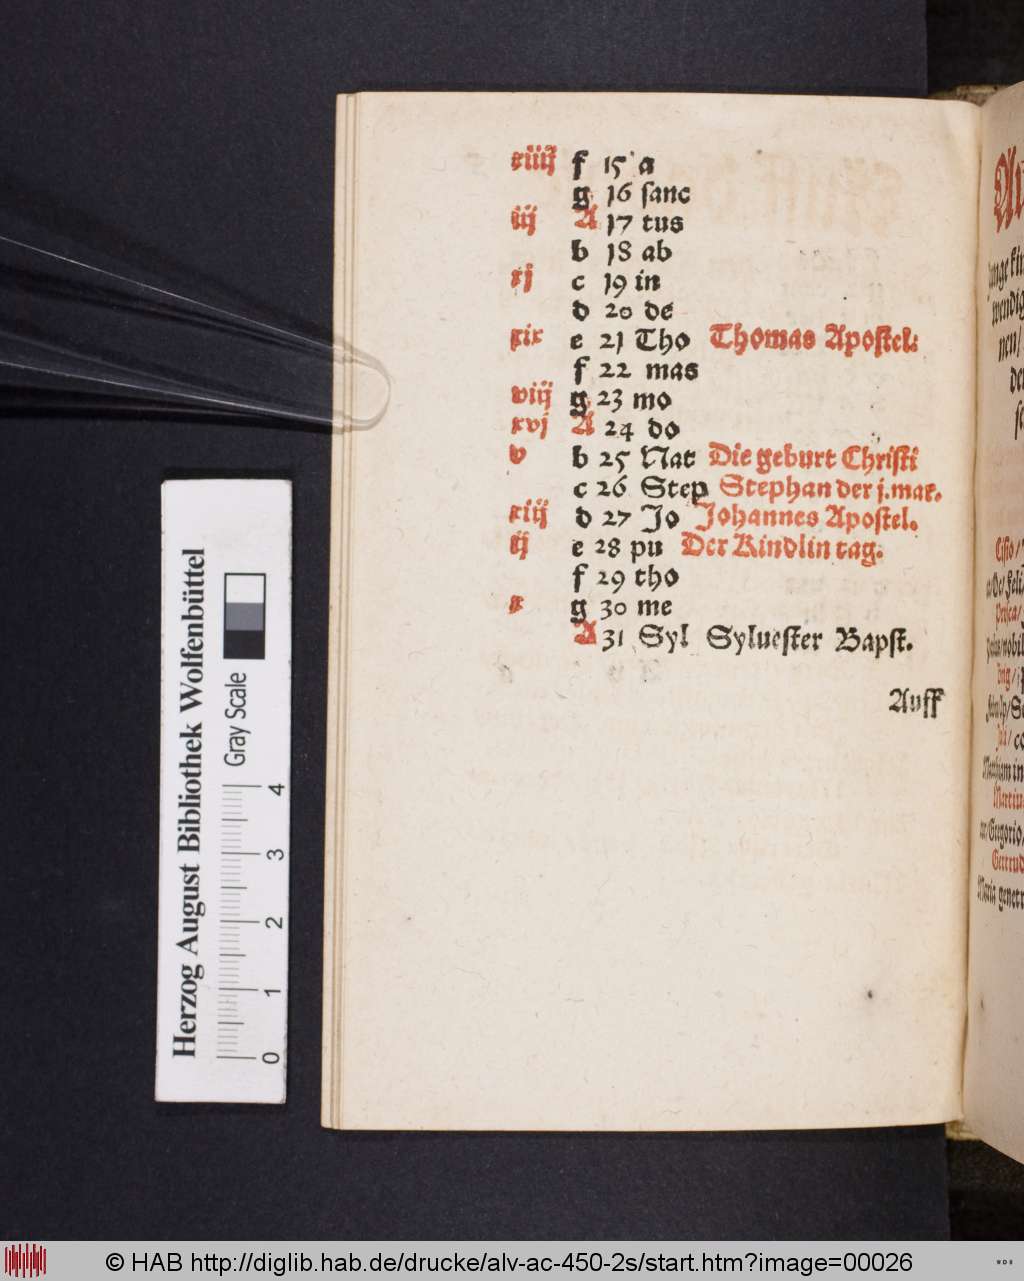 xiiij f 15 a
g 16 sanc
iij A 17 tus
b 18 ab
xj c 19 in
d 20 de
xix e 21 Tho Thomas Apostel.
f 22 mas
viij g 23 mo
xvj A 24 do
v b 25 Nat Die geburt Christi
c 26 Step Stephan der j. mar.
xiij d 27 Jo Johannes Apostel.
ij e 28 pu Der Kindlin tag.
f 29 tho
x g 30 me
A 31 Syl Syluester Bapst.
Auff
Herzog August Bibliothek Wolfenbüttel
Gray Scale
0 1 2 3 4
junge kin
wendig
nen/
Cisio/
Prisca/
Mathiam in
Gregorio
Gertrud
Maria gener
© HAB http://diglib.hab.de/drucke/alv-ac-450-2s/start.htm?image=00026